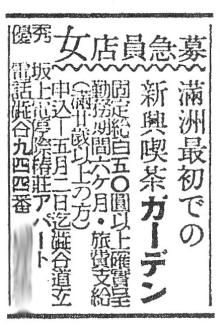 女店員急募
満洲最初での
新興喫茶ガーデン
固定給百五〇圓以上確實呈
勤務期間六ヶ月・旅費支給
(満廿歳以上の方)
申込—五月二日迄澁谷道玄
坂上電停陰椿荘アパート
電話澁谷九四四番
秀優